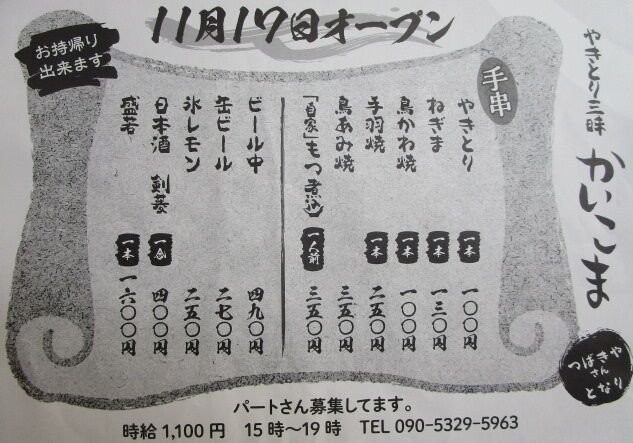 11月17日オープン
お持帰り
出来ます
やきとり三昧
かいこま
手串
やきとり 一本 一〇〇円
ねぎま 一本 一三〇円
鳥かわ焼 一本 一〇〇円
手羽焼 一本 二五〇円
鳥あみ焼 三五〇円
「自家」もつ煮込 一人前 三五〇円
ビール中 四九〇円
缶ビール 二七〇円
氷レモン 二五〇円
日本酒 剣菱 一合 四〇〇円
盛若 一本 一六〇〇円
やきさん
つばき
となり
パートさん募集してます。
時給1,100円 15時〜19時 TEL 090-5329-5963